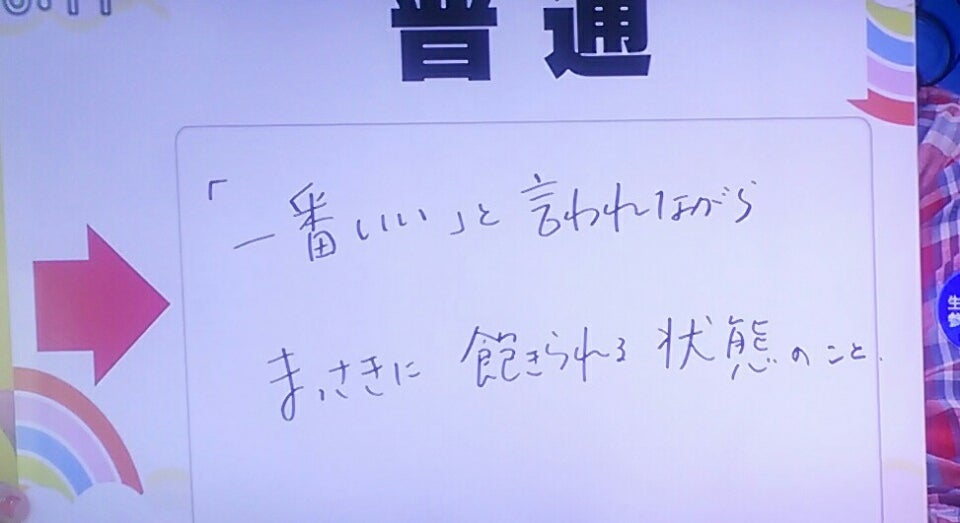 普通
「一番いい」と言われながら
まっさきに飽きられる状態のこと.